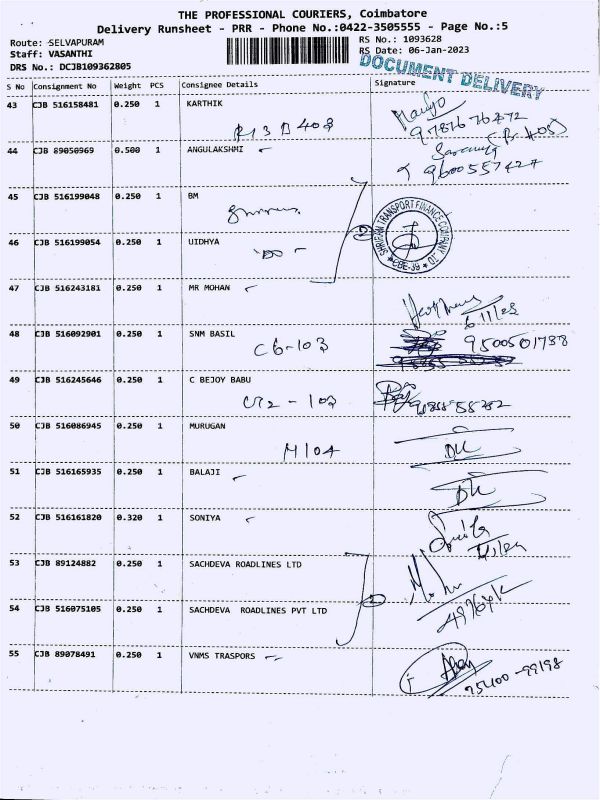 THE PROFESSIONAL COURIERS, Coimbatore
Delivery Runsheet - PRR - Phone No.:0422-3505555 - Page No.:5
Route: SELVAPURAM RS No.: 1093628
Staff: VASANTHI RS Date: 06-Jan-2023
DRS No.: DCJB109362805 DOCUMENT DELIVERY
S No Consignment No Weight PCS Consignee Details Signature
43 CJB 516158481 0.250 1 KARTHIK
R13 D 403
44 CJB 89050969 0.500 1 ANGULAKSHMI
9600557427
45 CJB 516199048 0.250 1 BM
SHRIRAM TRANSPORT FINANCE COMPANY
CBE-39
46 CJB 516199054 0.250 1 UIDHYA
47 CJB 516243181 0.250 1 MR MOHAN
48 CJB 516092901 0.250 1 SNM BASIL
C6-103 9500501738
49 CJB 516245646 0.250 1 C BEJOY BABU
50 CJB 516086945 0.250 1 MURUGAN
M104
51 CJB 516165935 0.250 1 BALAJI
52 CJB 516161820 0.320 1 SONIYA
53 CJB 89124882 0.250 1 SACHDEVA ROADLINES LTD
54 CJB 516075105 0.250 1 SACHDEVA ROADLINES PVT LTD
55 CJB 89078491 0.250 1 VNMS TRASPORS
95400-99198